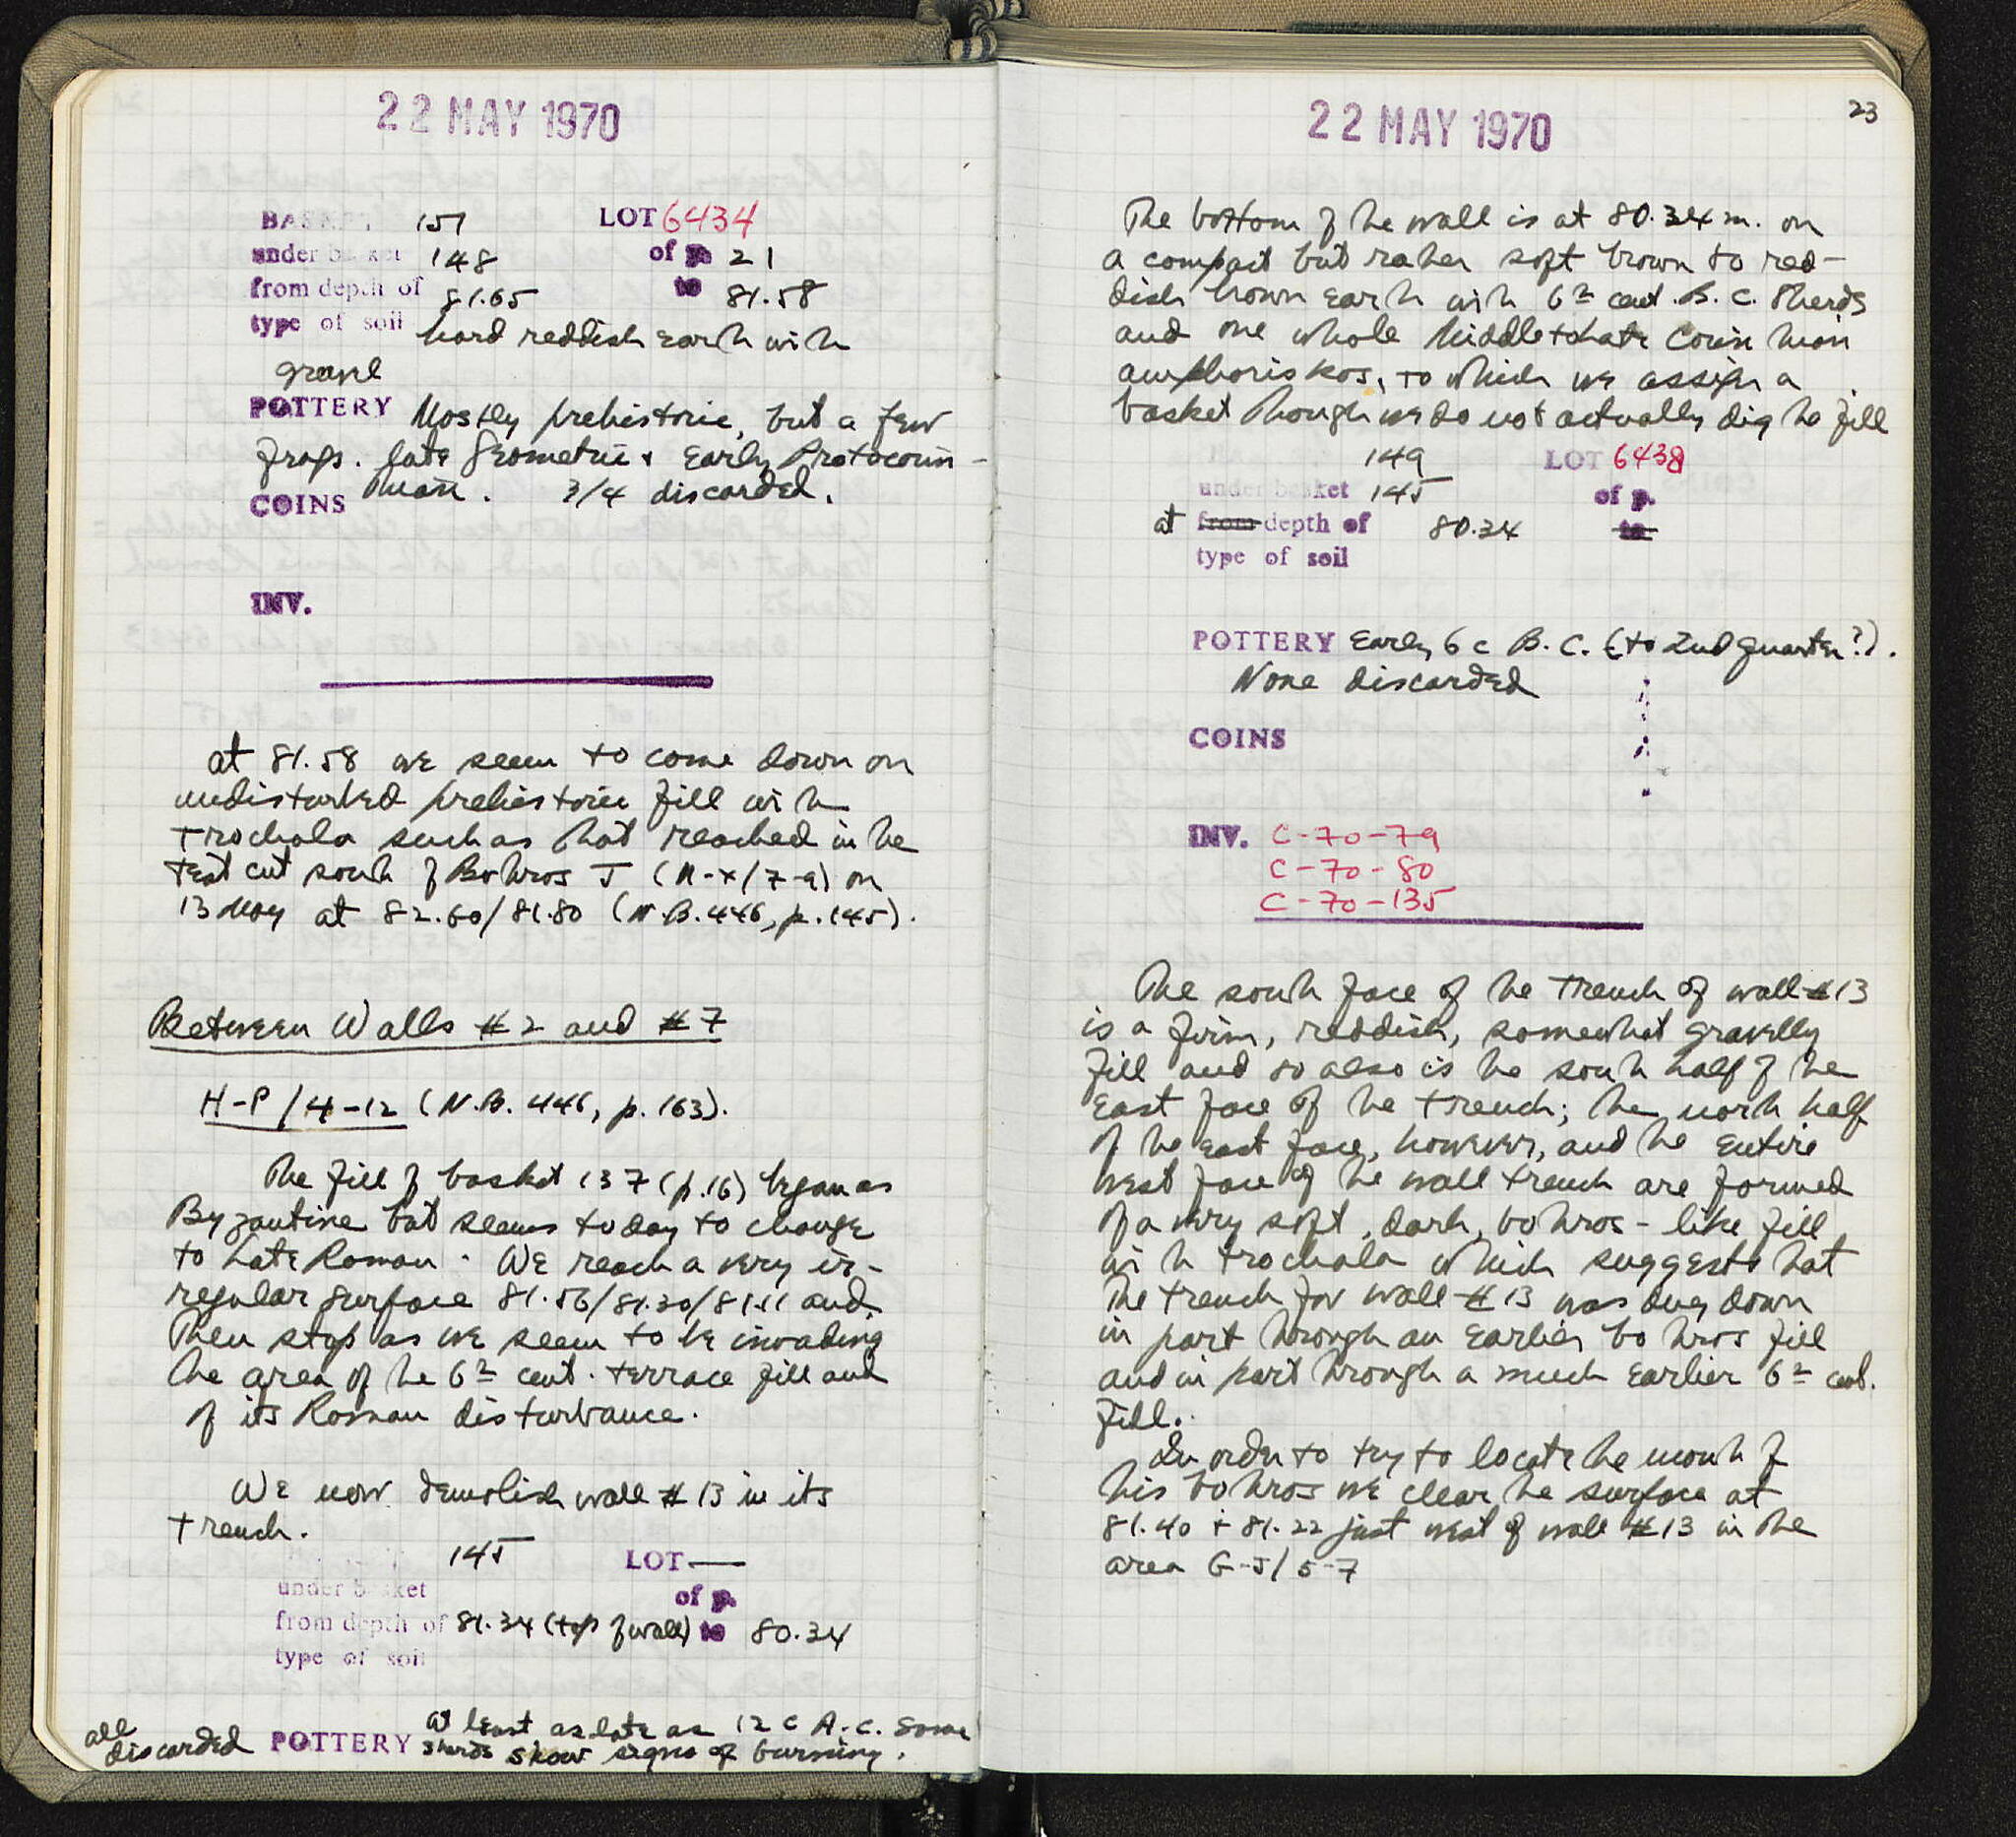 22 MAY 1970
BASKET 151 LOT 6434
under basket 148 of p. 21
from depth of 81.65 to 81.58
type of soil hard reddish earth with
gravel
POTTERY Mostly prehistoric, but a few
frags. late Geometric + Early Protocorin-
thian. 3/4 discarded.
COINS
INV.
at 81.58 we seem to come down on
undisturbed prehistoric fill with
trochala such as that reached in the
test cut south of Bothros J (N-X/7-9) on
13 May at 82.60/81.80 (N.B. 446, p. 145).
Between Walls #2 and #7
H-P/4-12 (N.B. 446, p. 163).
The fill of basket 137 (p. 16) began as
Byzantine but seems today to change
to Late Roman. We reach a very ir-
regular surface 81.56/81.30/81.11 and
then stop as we seem to be invading
the area of the 6th cent. terrace fill and
of its Roman disturbance.
We now demolish wall #13 in its
trench.
145 LOT —
under basket of p.
from depth of 81.34 (top of wall) to 80.34
type of soil
all discarded POTTERY at least as late as 12 c A.C. Some
sherds show signs of burning.
22 MAY 1970
23
The bottom of the wall is at 80.34 m. on
a compact but rather soft brown to red-
dish brown earth with 6th cent. B.C. sherds
and one whole Middle + Late Corinthian
amphoriskos, to which we assign a
basket though we do not actually dig the fill
149 LOT 6438
under basket 145 of p.
at from depth of 80.34 to
type of soil
POTTERY Early 6 c B.C. (to 2nd quarter?).
None discarded
COINS
INV. C-70-79
C-70-80
C-70-135
The south face of the trench of wall #13
is a firm, reddish, somewhat gravelly
fill and so also is the south half of the
east face of the trench; the north half
of the east face, however, and the entire
west face of the wall trench are formed
of a very soft, dark, bothros-like fill
with trochala which suggests that
the trench for wall #13 was dug down
in part through an earlier bothros fill
and in part through a much earlier 6th cent.
fill.
In order to try to locate the mouth of
this bothros we clear the surface at
81.40 + 81.22 just west of wall #13 in the
area G-J/5-7